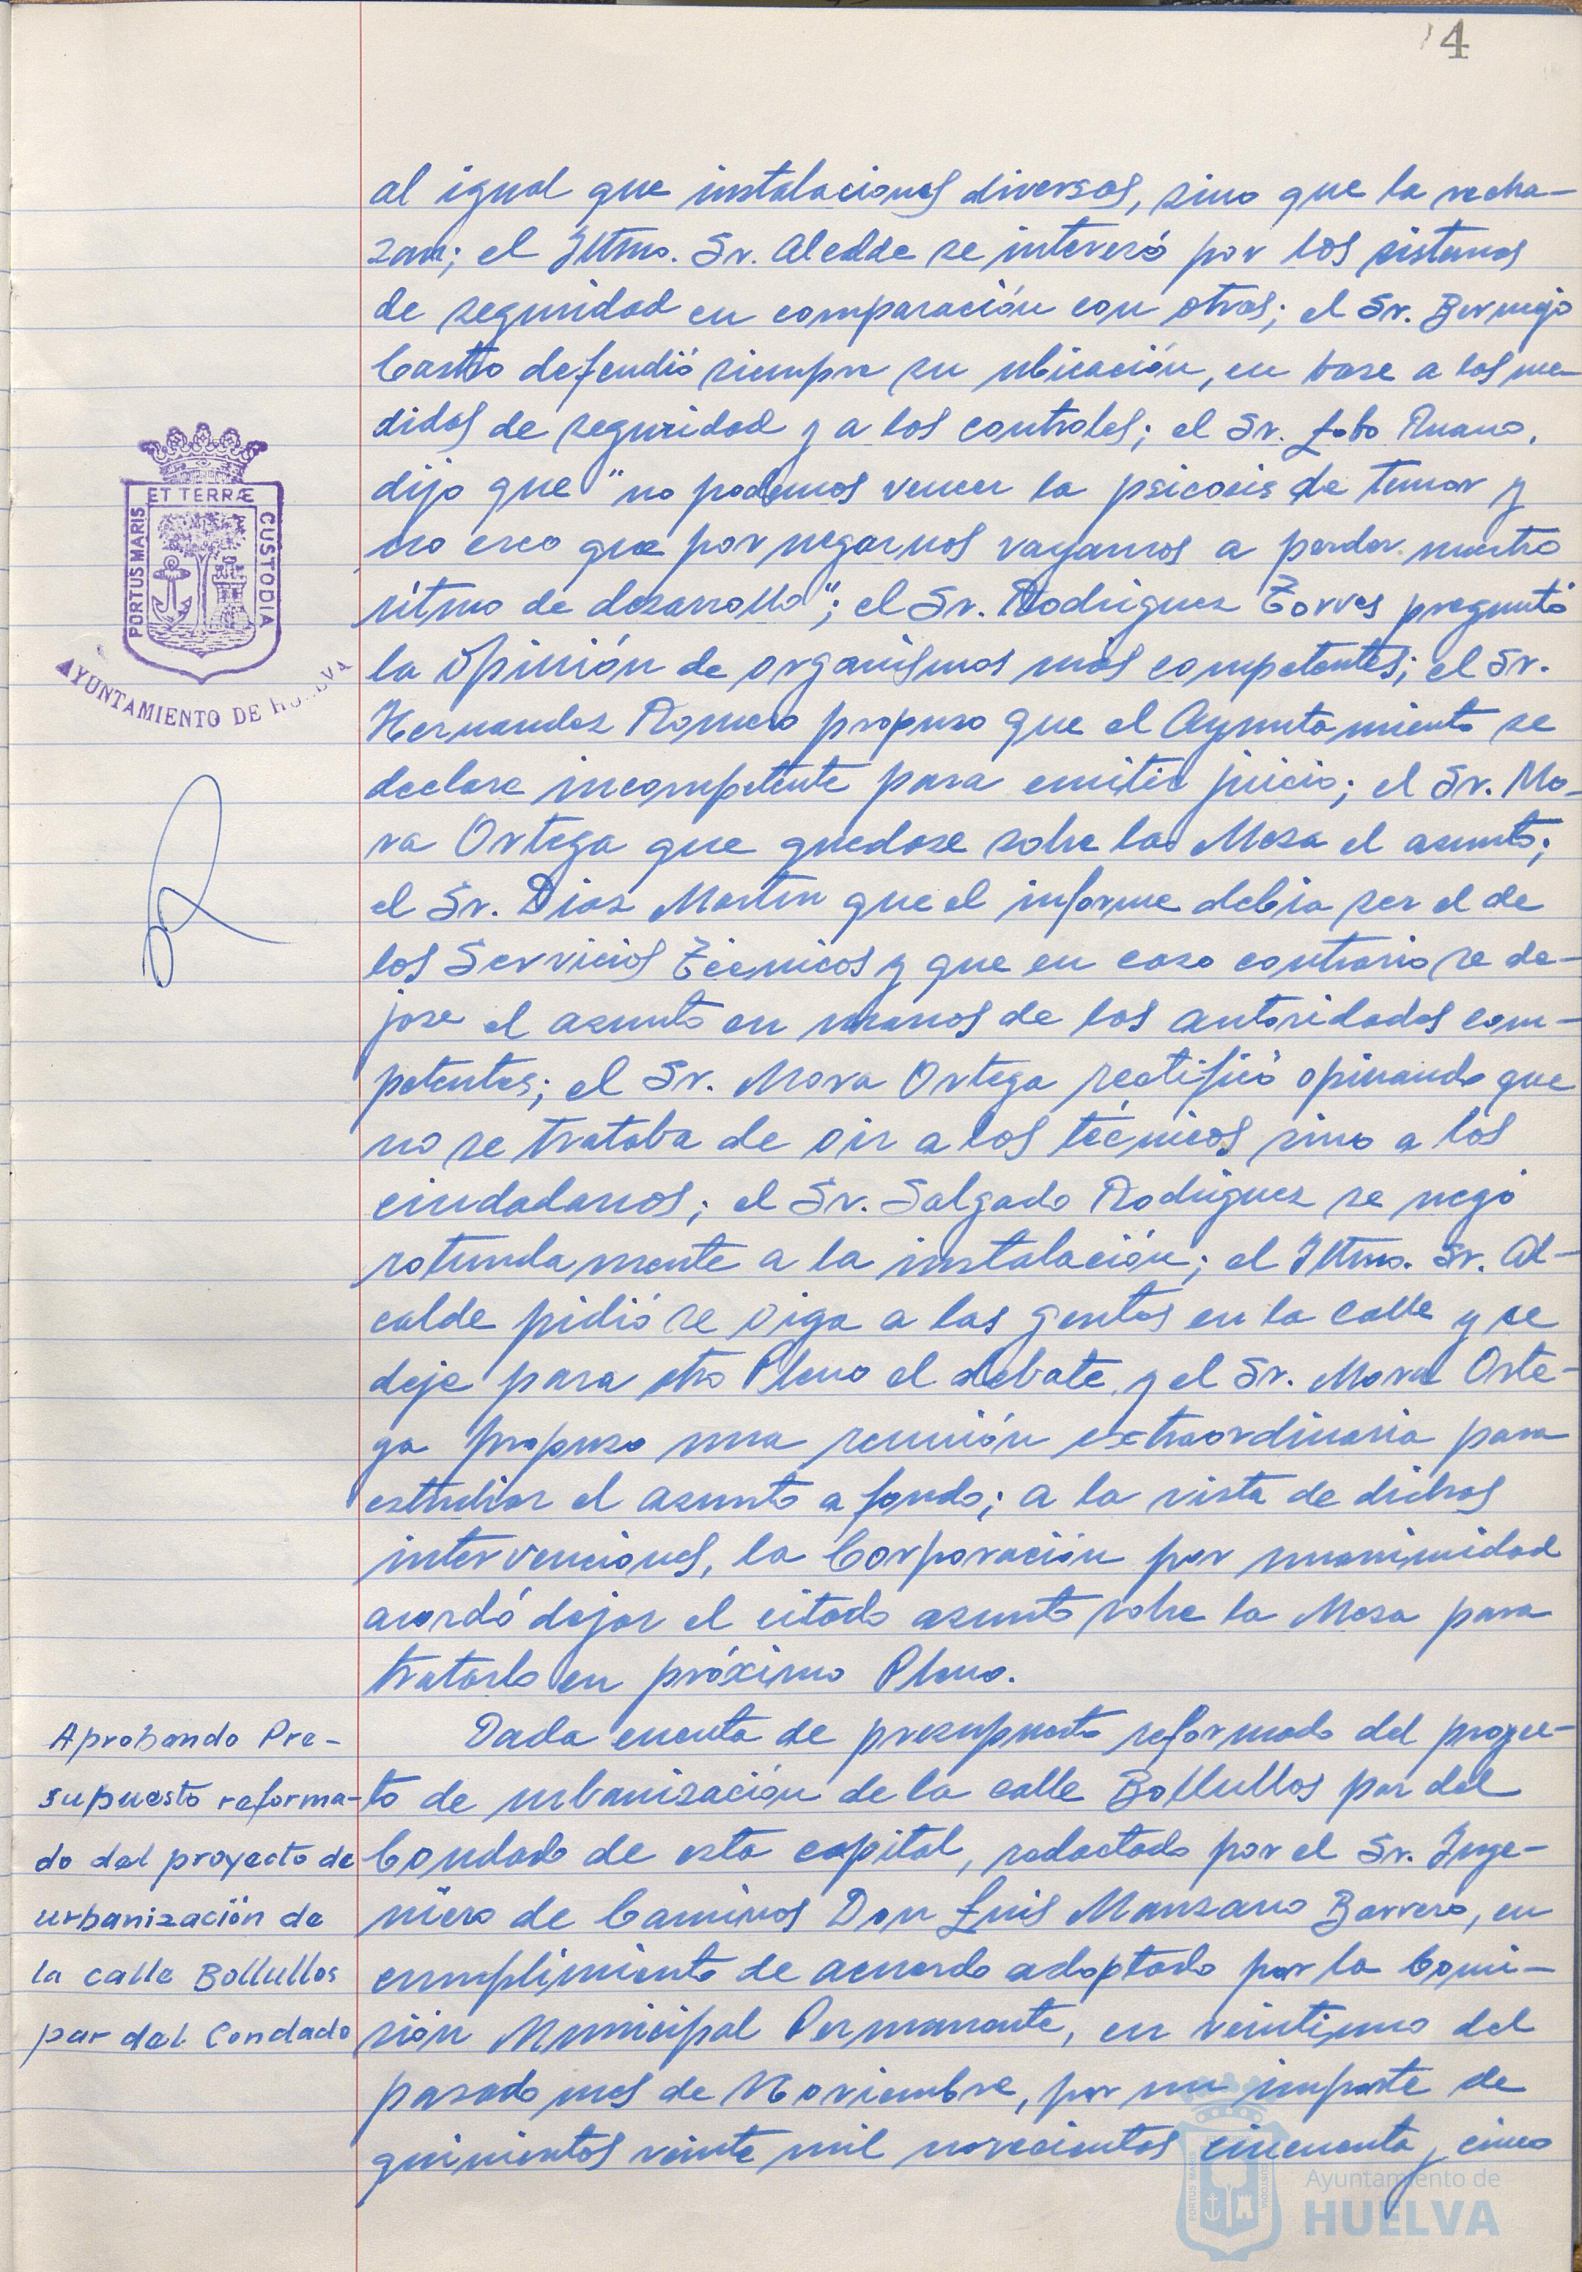 4
al igual que instalaciones diversas, sino que la recha-
zan; el Iltmo. Sr. Alcalde se interesó por los sistemas
de seguridad en comparación con otras; el Sr. Bermejo
Castro defendió siempre su ubicación, en base a las me-
didas de seguridad y a los controles; el Sr. Lobo Ruano,
dijo que "no podemos vencer la psicosis de temor y
no creo que por negarnos vayamos a perder nuestro
ritmo de desarrollo"; el Sr. Rodriguez Torres preguntó
la opinión de organismos más competentes; el Sr.
Hernandez Romero propuso que el Ayuntamiento se
declare incompetente para emitir juicio; el Sr. Mo-
ra Ortega que quedase sobre la Mesa el asunto;
el Sr. Diaz Martin que el informe debia ser el de
los Servicios Técnicos y que en caso contrario se de-
jase el asunto en manos de las autoridades com-
petentes; el Sr. Mora Ortega rectificó opinando que
no se trataba de oir a los técnicos sino a los
ciudadanos; el Sr. Salgado Rodriguez se negó
rotundamente a la instalación; el Iltmo. Sr. Al-
calde pidió se oiga a las gentes en la calle y se
deje para otro Pleno el debate y el Sr. Mora Orte-
ga propuso una reunión extraordinaria para
estudiar el asunto a fondo; a la vista de dichas
intervenciones, la Corporación por unanimidad
acordó dejar el citado asunto sobre la Mesa para
tratarlo en próximo Pleno.
Aprobando Pre-
supuesto reforma-
do del proyecto de
urbanización de
la calle Bollullos
par del Condado
Dada cuenta de presupuesto reformado del proyec-
to de urbanización de la calle Bollullos par del
Condado de esta capital, redactado por el Sr. Inge-
niero de Caminos Don Luis Manzano Barrero, en
cumplimiento de acuerdo adoptado por la Comi-
sión Municipal Permanente, en veintiuno del
pasado mes de Noviembre, por un importe de
quinientos veinte mil novecientos cincuenta y cinco
PORTUS MARIS
ET TERRÆ
CUSTODIA
AYUNTAMIENTO DE HUELVA
Ayuntamiento de
HUELVA